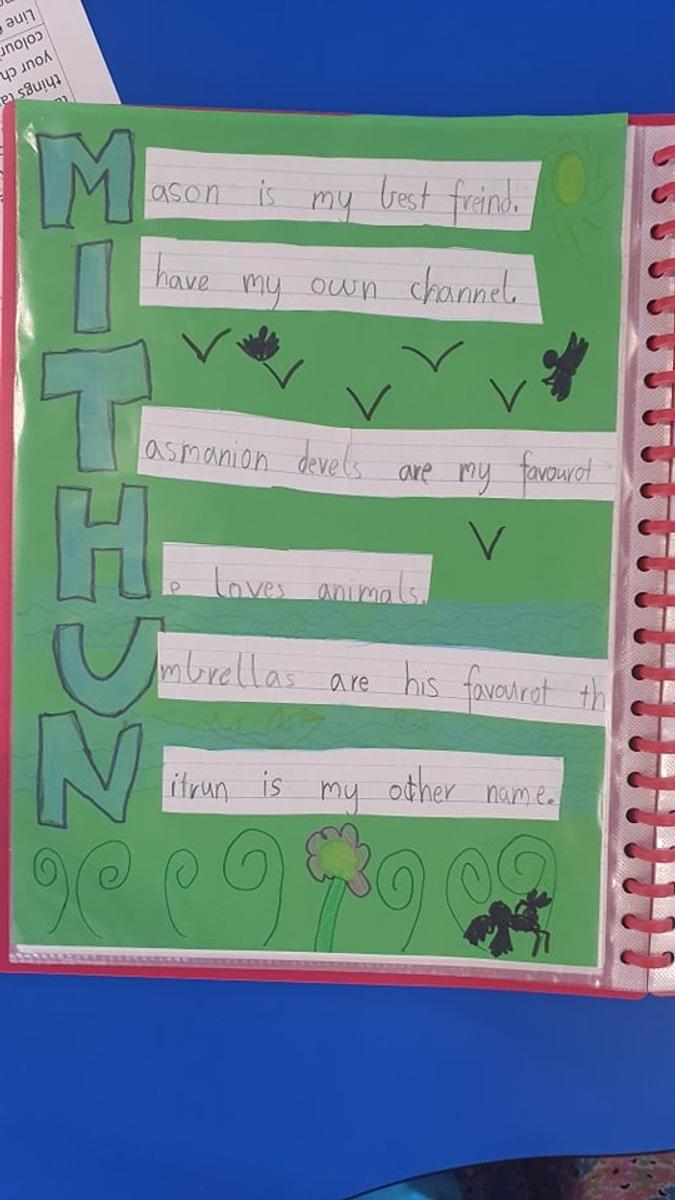 Line
colouri
your ch
things ta
Mason is my best freind.
I have my own channel.
Tasmanion devels are my favourot
He loves animals.
Umbrellas are his favourot th
Nitrun is my other name.